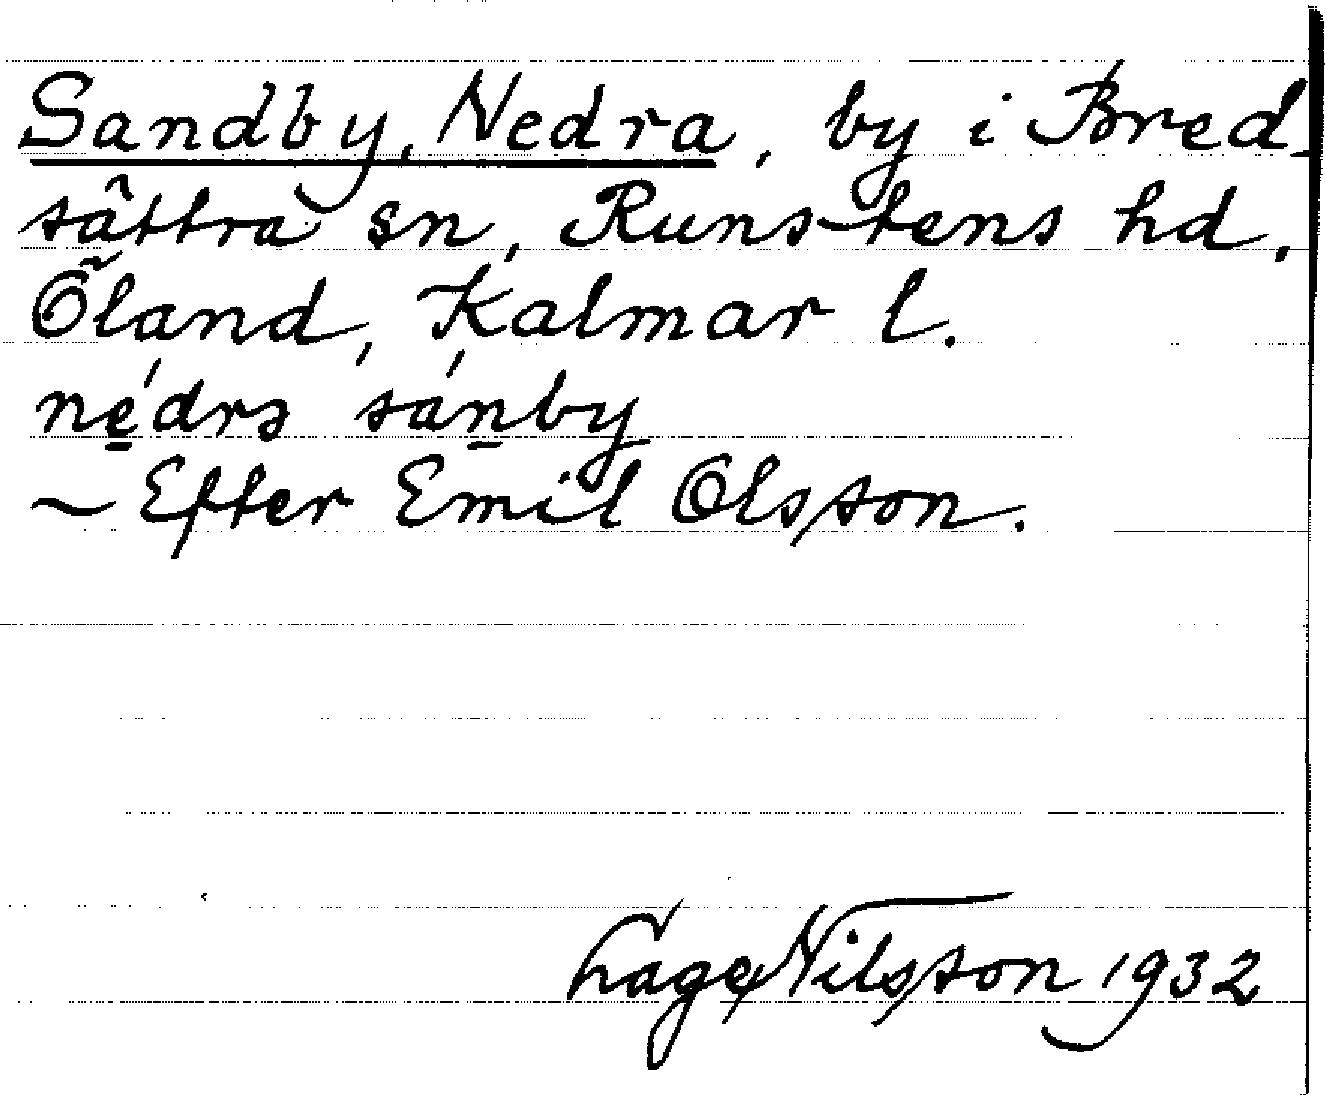 Sandby, Nedra, by i Bred-
sättra sn, Runstens hd,
Öland, Kalmar l.
ne̱´drə sán̠by
~ Efter Emil Olsson.
Hage Nilsson 1932